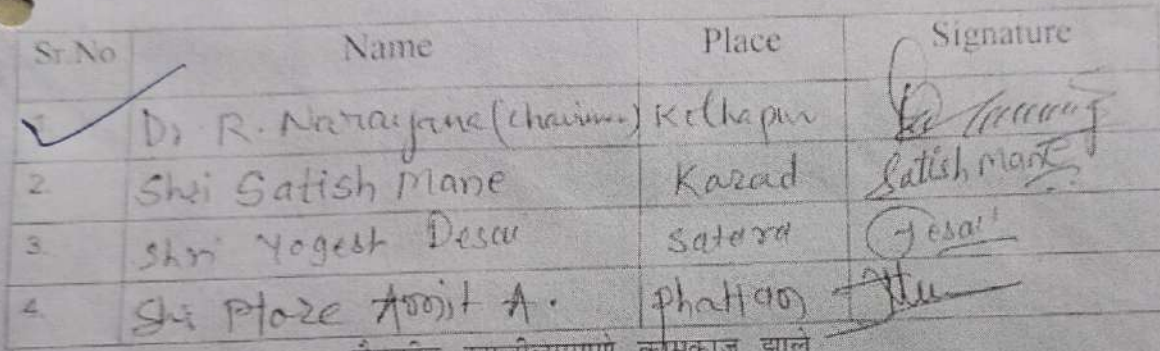 Sr.No Name Place Signature
Dr. R. Narayana (chairman) Kolhapur
2. Shri Satish Mane Karad Satish Mane
3. Shri Yogesh Desai Satara Desai
4. Shri Amjit A. Phaltan
कामकाज झाले